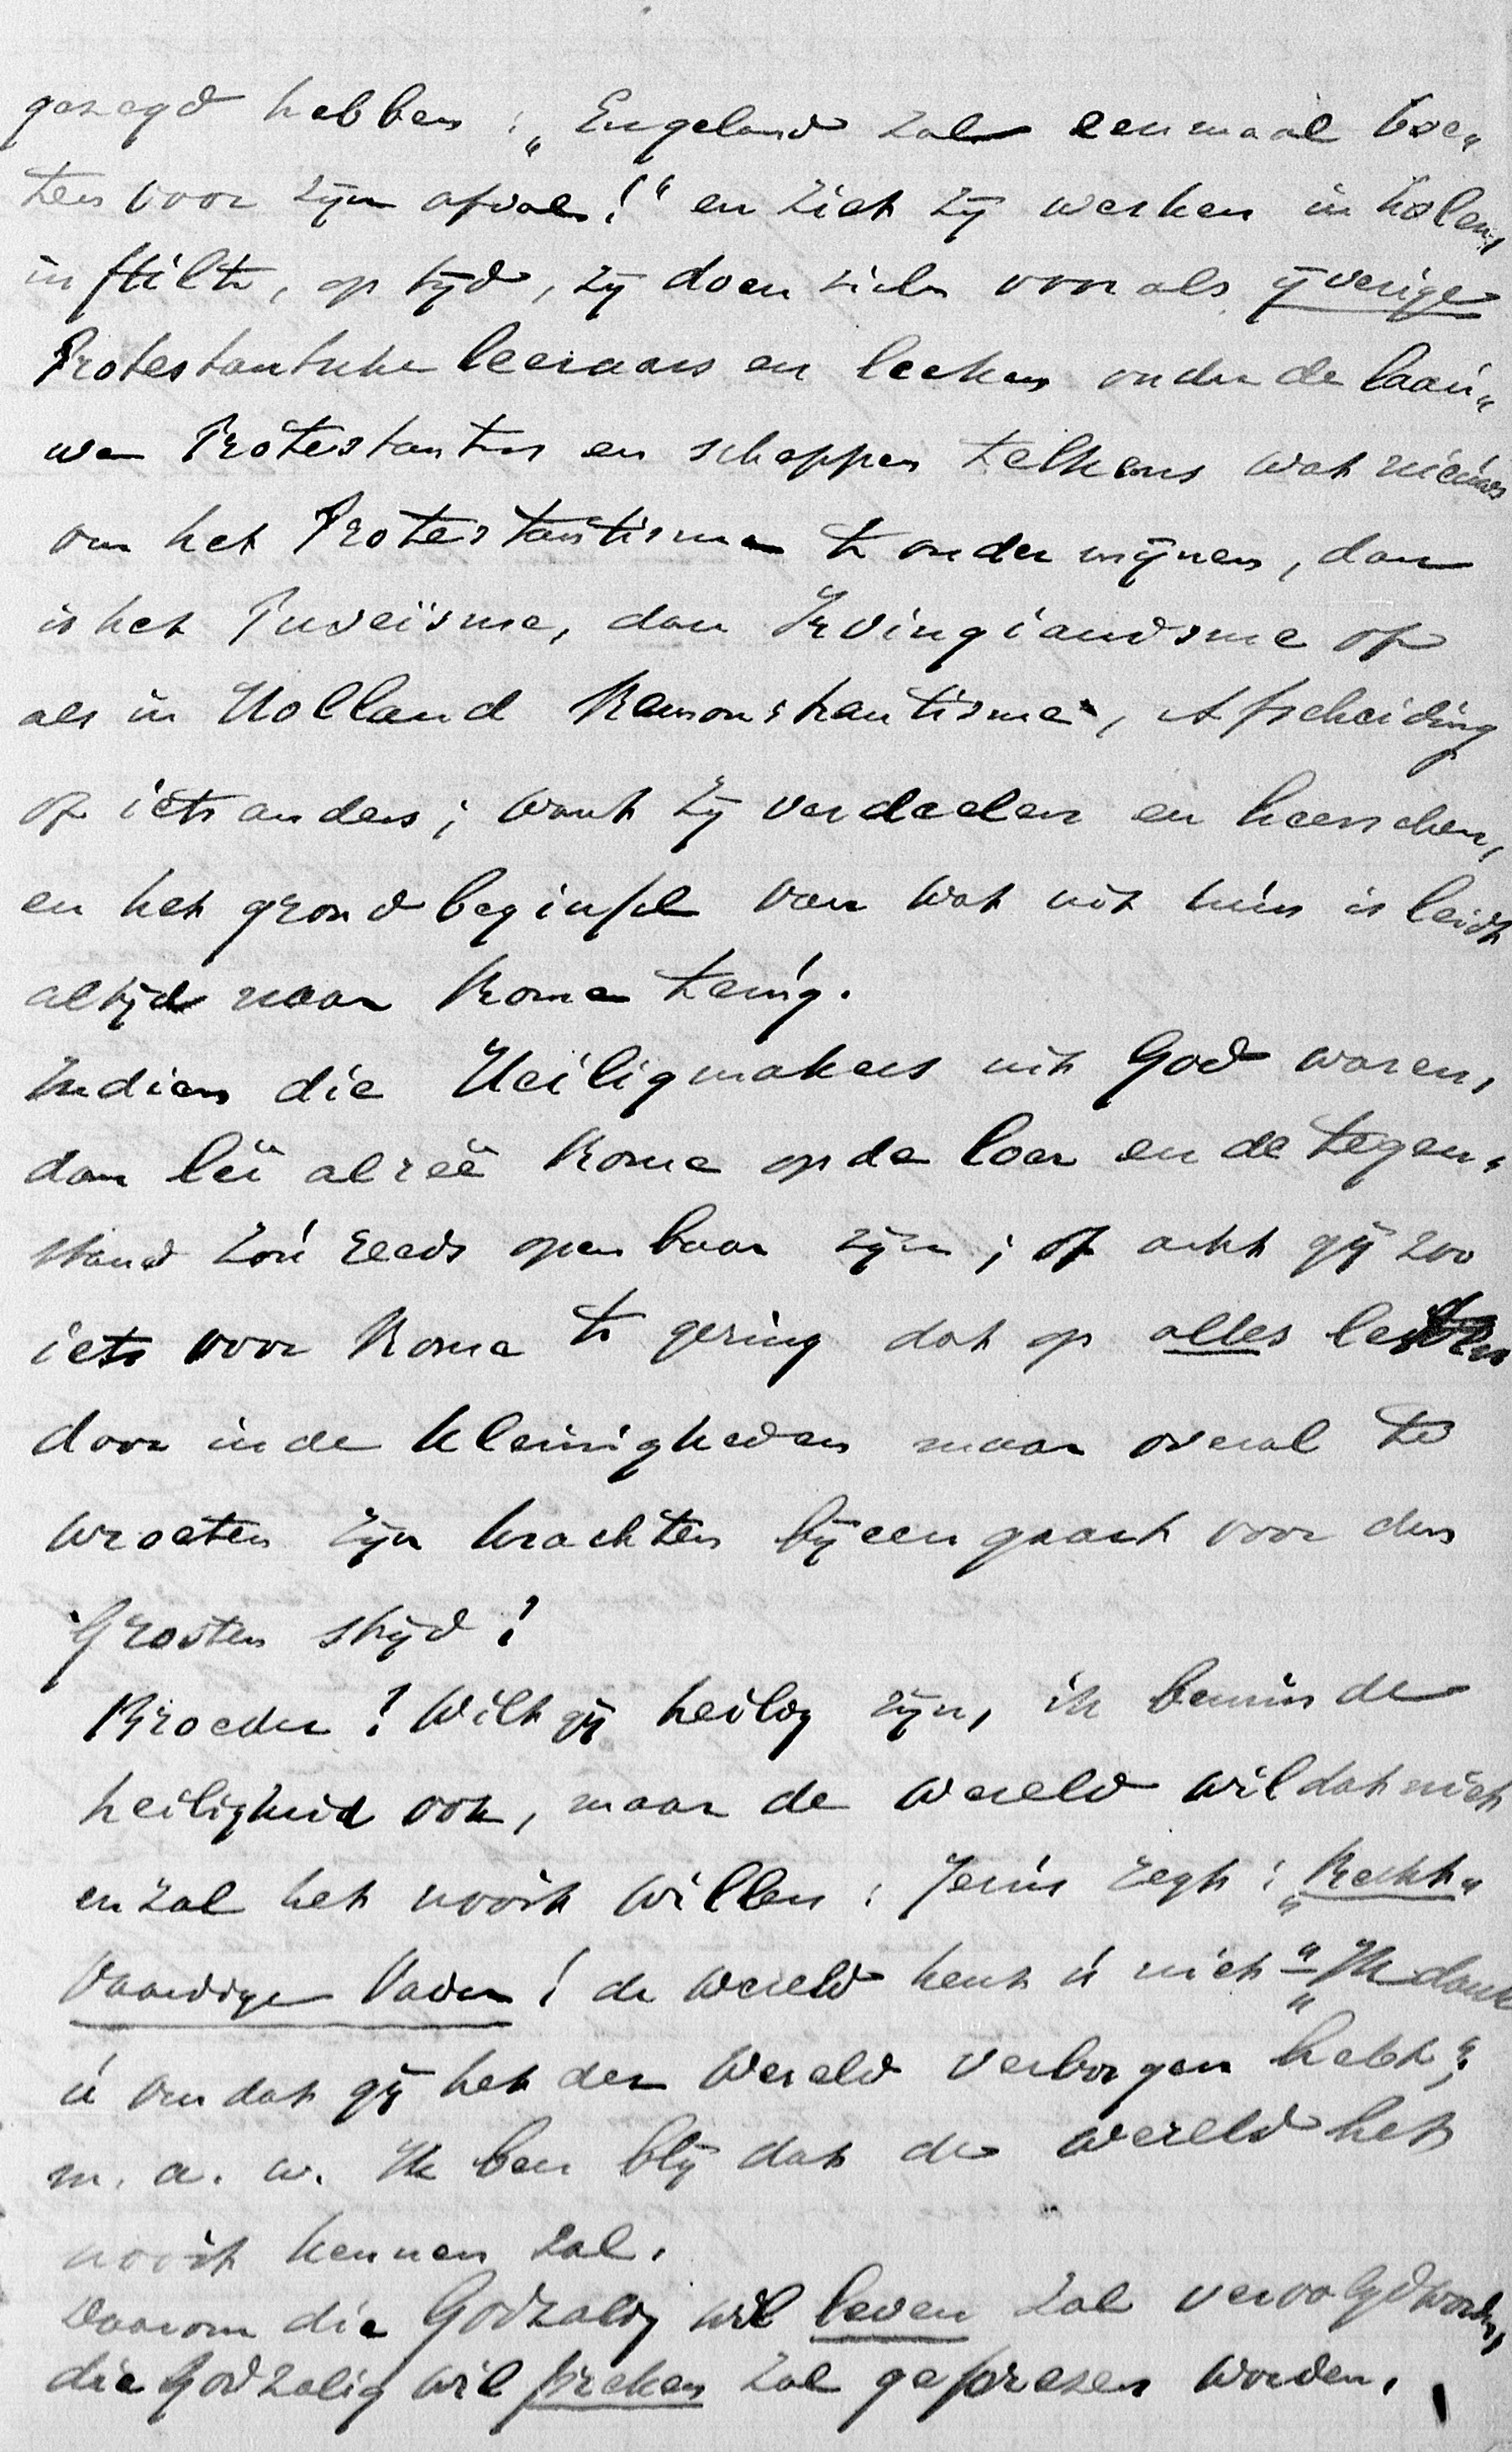 gezegd hebben: „Engeland zal eenmaal boe„
ten voor zijn afval!“ en ziet zij werken in holen,
in stilte, op tijd, zij doen zich voor als ijverige
Protestantsche leeraars en leeken onder de laau„
we Protestanten en scheppen telkens wat nieuws
om het Protestantisme te ondermijnen, dan
is het Puseïsme, dan Irvingiandsme of
als in Holland Remonstrantisme, Afscheiding
of iets anders; want zij verdeelen en heerschen,
en het grondbeginsel van wat uit hun is leidt
altijd naar Rome terug.
Indien die Heiligmakers uit God waren,
dan leï alreê Rome op de loer en de tegen„
stand zou reeds openbaar zijn; of acht gij zoo
iets voor Rome te gering dat op alles let en
door in de kleinigheden maar overal te
wroeten zijn krachten bijeengaart voor den
Grooten strijd!
Broeder! Wilt gij heilig zijn, ik beminde
heiligheid ook, maar de wereld wil dat niet
en zal het nooit willen: Jezus zegt: „Recht„
vaardige Vader! de wereld kent ú niet“ – „Ik dank
ú omdat gij het der wereld verborgen hebt“;
m. a. w. Ik ben blij dat de wereld het
nooit kennen zal.
Daarom die Godzalig wil leven zal vervolgd worden,
die Godzalig wil preken zal geprezen worden.